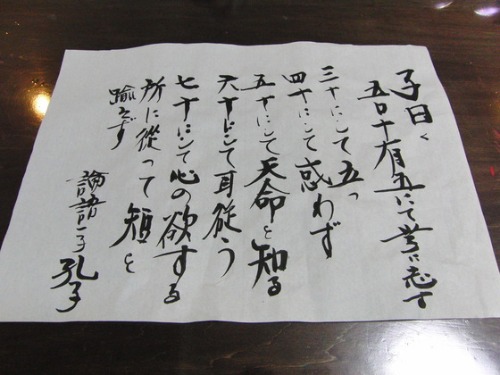 子曰く
吾十有五にて学に志す
三十にして立つ
四十にして惑わず
五十にして天命を知る
六十にして耳従う
七十にして心の欲する
所に従って短を
踰えず
論語より 孔子